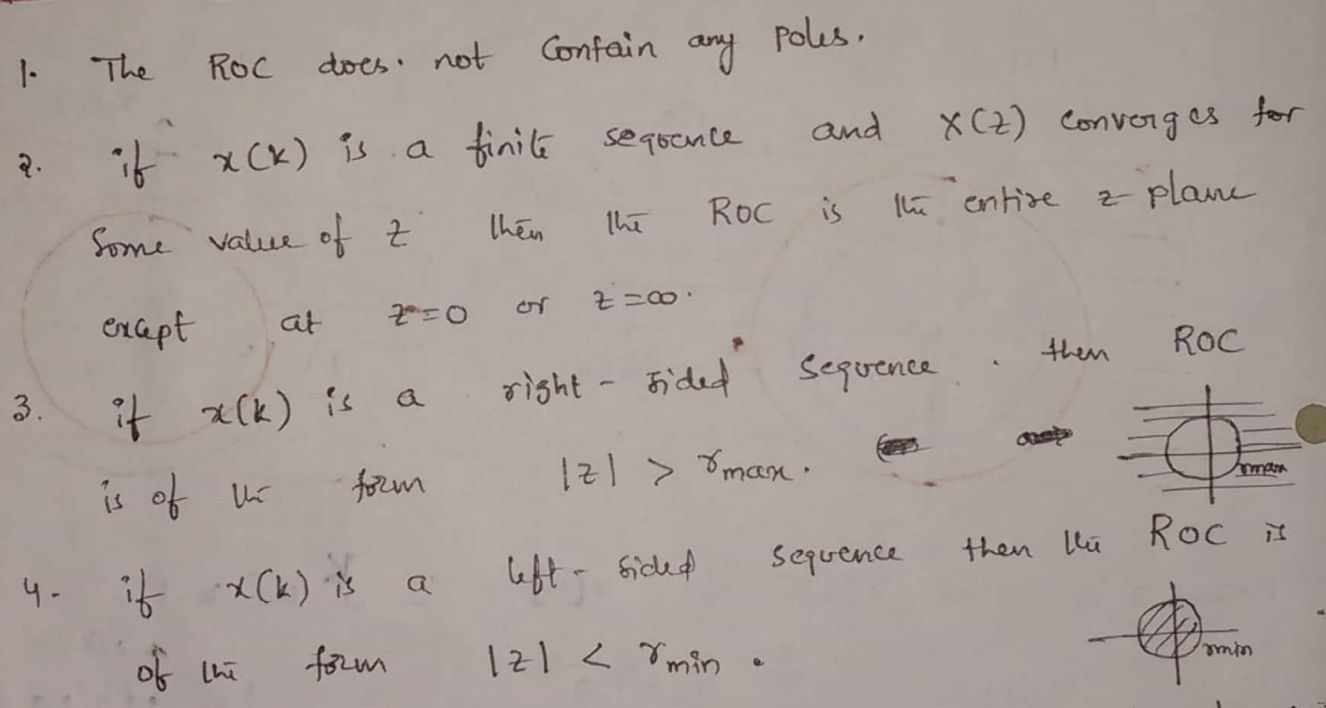 1. The ROC does. not Contain any Poles.
2. if x(k) is a finite sequence and X(z) converges for
Some value of z then the ROC is the entire z-plane
except at z=0 or z=∞.
3. if x(k) is a right-sided sequence. then ROC
is of the form |z| > rmax.
rmax
4. if x(k) is a left-sided sequence then the ROC is
of the form |z| < rmin.
rmin